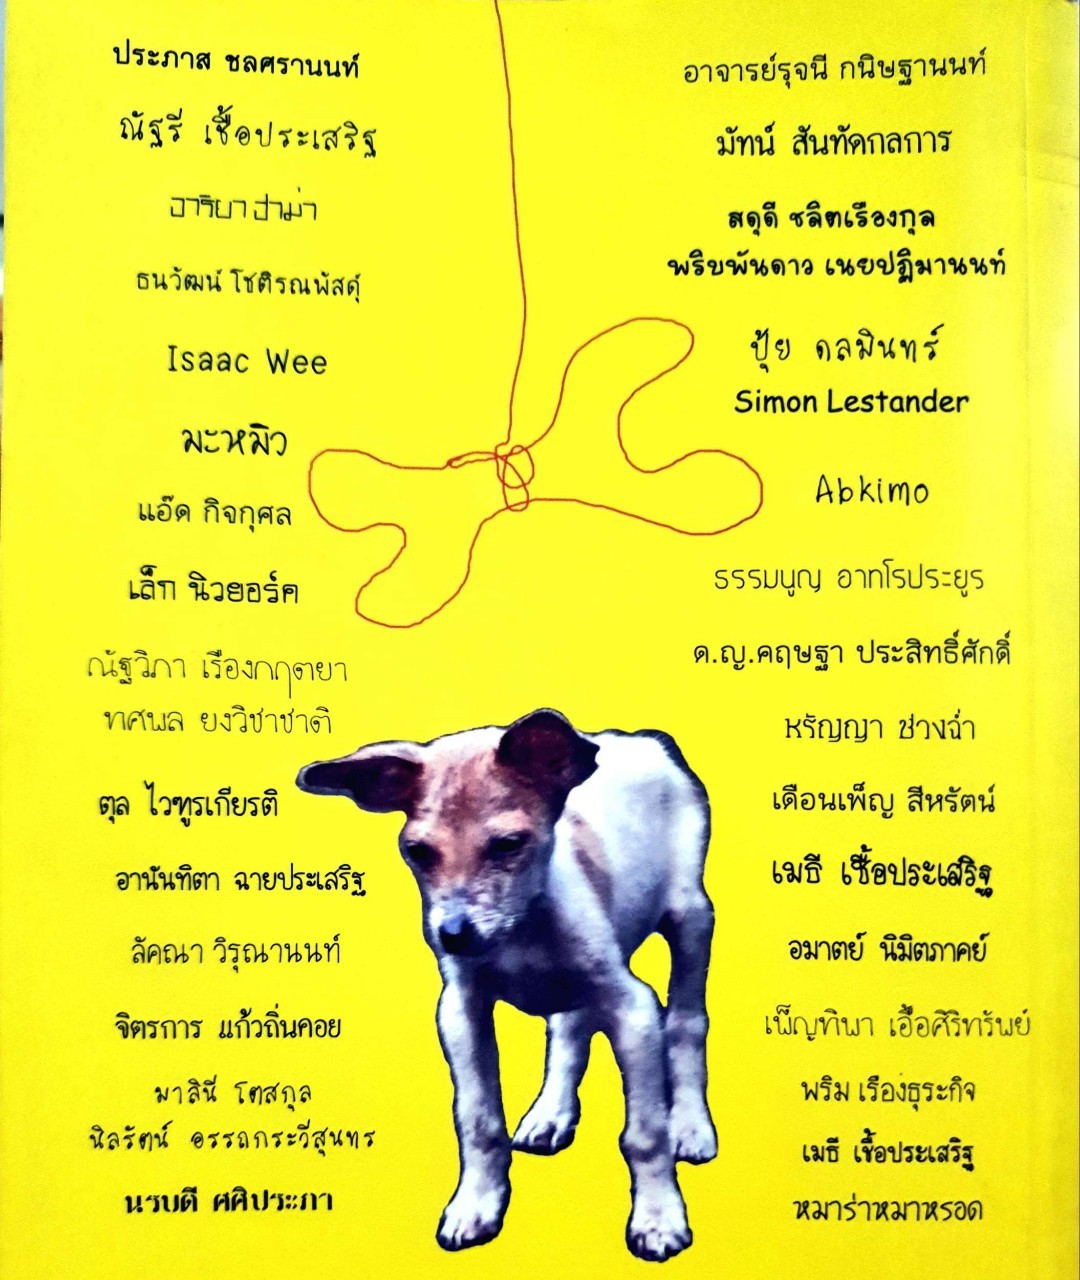 ประภาส ชลศรานนท์
ณัฐรี เชื้อประเสริฐ
อาริยา ฮาม่า
ธนวัฒน์ โชติรณพัสดุ์
Isaac Wee
มะหมิว
แอ๊ด กิจกุศล
เล็ก นิวยอร์ค
ณัฐวิภา เรืองกฤตยา
ทศพล ยงวิชาชาติ
ตุล ไวฑูรเกียรติ
อานันทิตา ฉายประเสริฐ
ลัคณา วิรุณานนท์
จิตรการ แก้วถิ่นคอย
มาลินี โตสกุล
นิลรัตน์ อรรถกระวีสุนทร
นรบดี ศศิประภา
อาจารย์รุจนี กนิษฐานนท์
มัทน์ สันทัดกลการ
สดุดี ชลิตเรืองกุล
พริบพันดาว เนยปฏิมานนท์
ปุ้ย ดลมินทร์
Simon Lestander
Abkimo
ธรรมนูญ อาทโรประยูร
ด.ญ.คฤษฐา ประสิทธิ์ศักดิ์
หรัญญา ช่วงฉ่ำ
เดือนเพ็ญ สีหรัตน์
เมธี เชื้อประเสริฐ
อมาตย์ นิมิตภาคย์
เพ็ญทิพา เอื้อศิริทรัพย์
พริม เรืองธุระกิจ
เมธี เชื้อประเสริฐ
หมาร่าหมาหรอด